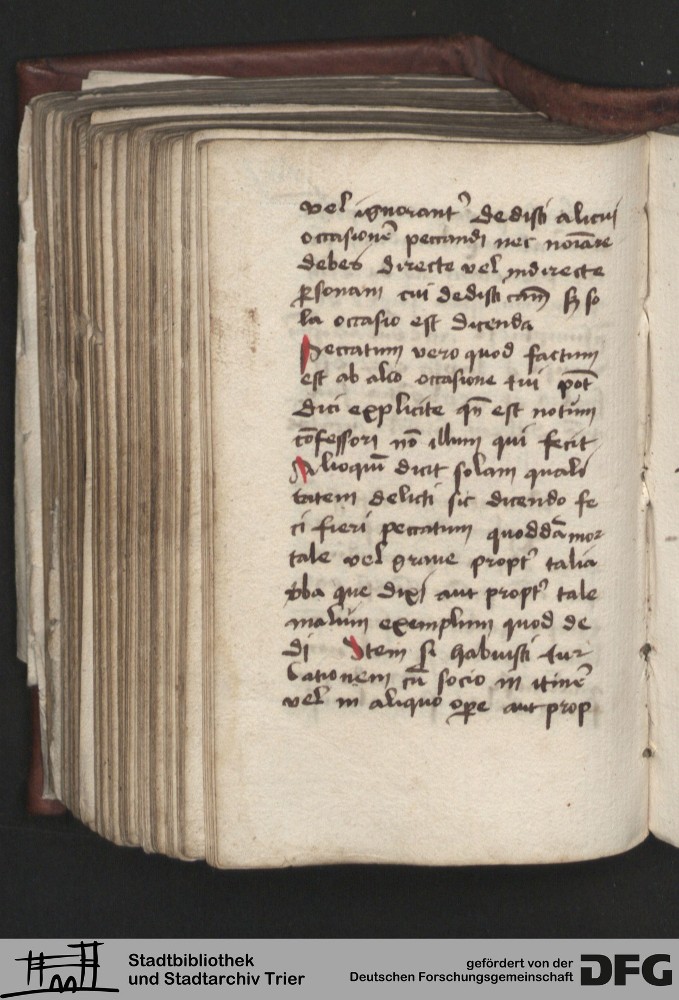 vel ignorant᾽ dedisti alicui
occasionē peccandi nec noīare
debes directe vel indirecte
ꝑsonam cui dedisti eam̄ sꝫ so
la occasio est dicenda
Peccatum vero quod factum
est ab alio occasione tui pōt
dici explicite qn̄ est notum
cōfessori nō illum qui fecit
Alioquī dicit solam quali
tatem delicti sic dicendo fe
ci fieri peccatum quoddā mor
tale vel grave propt᾽ talia
vba que dixi aut propt᾽ tale
malum exemplum quod de
di Item si habuisti tur
bationem cū socio in itinē
vel in aliquo oꝑe aut prop
Stadtbibliothek
und Stadtarchiv Trier
gefördert von der
Deutschen Forschungsgemeinschaft
DFG